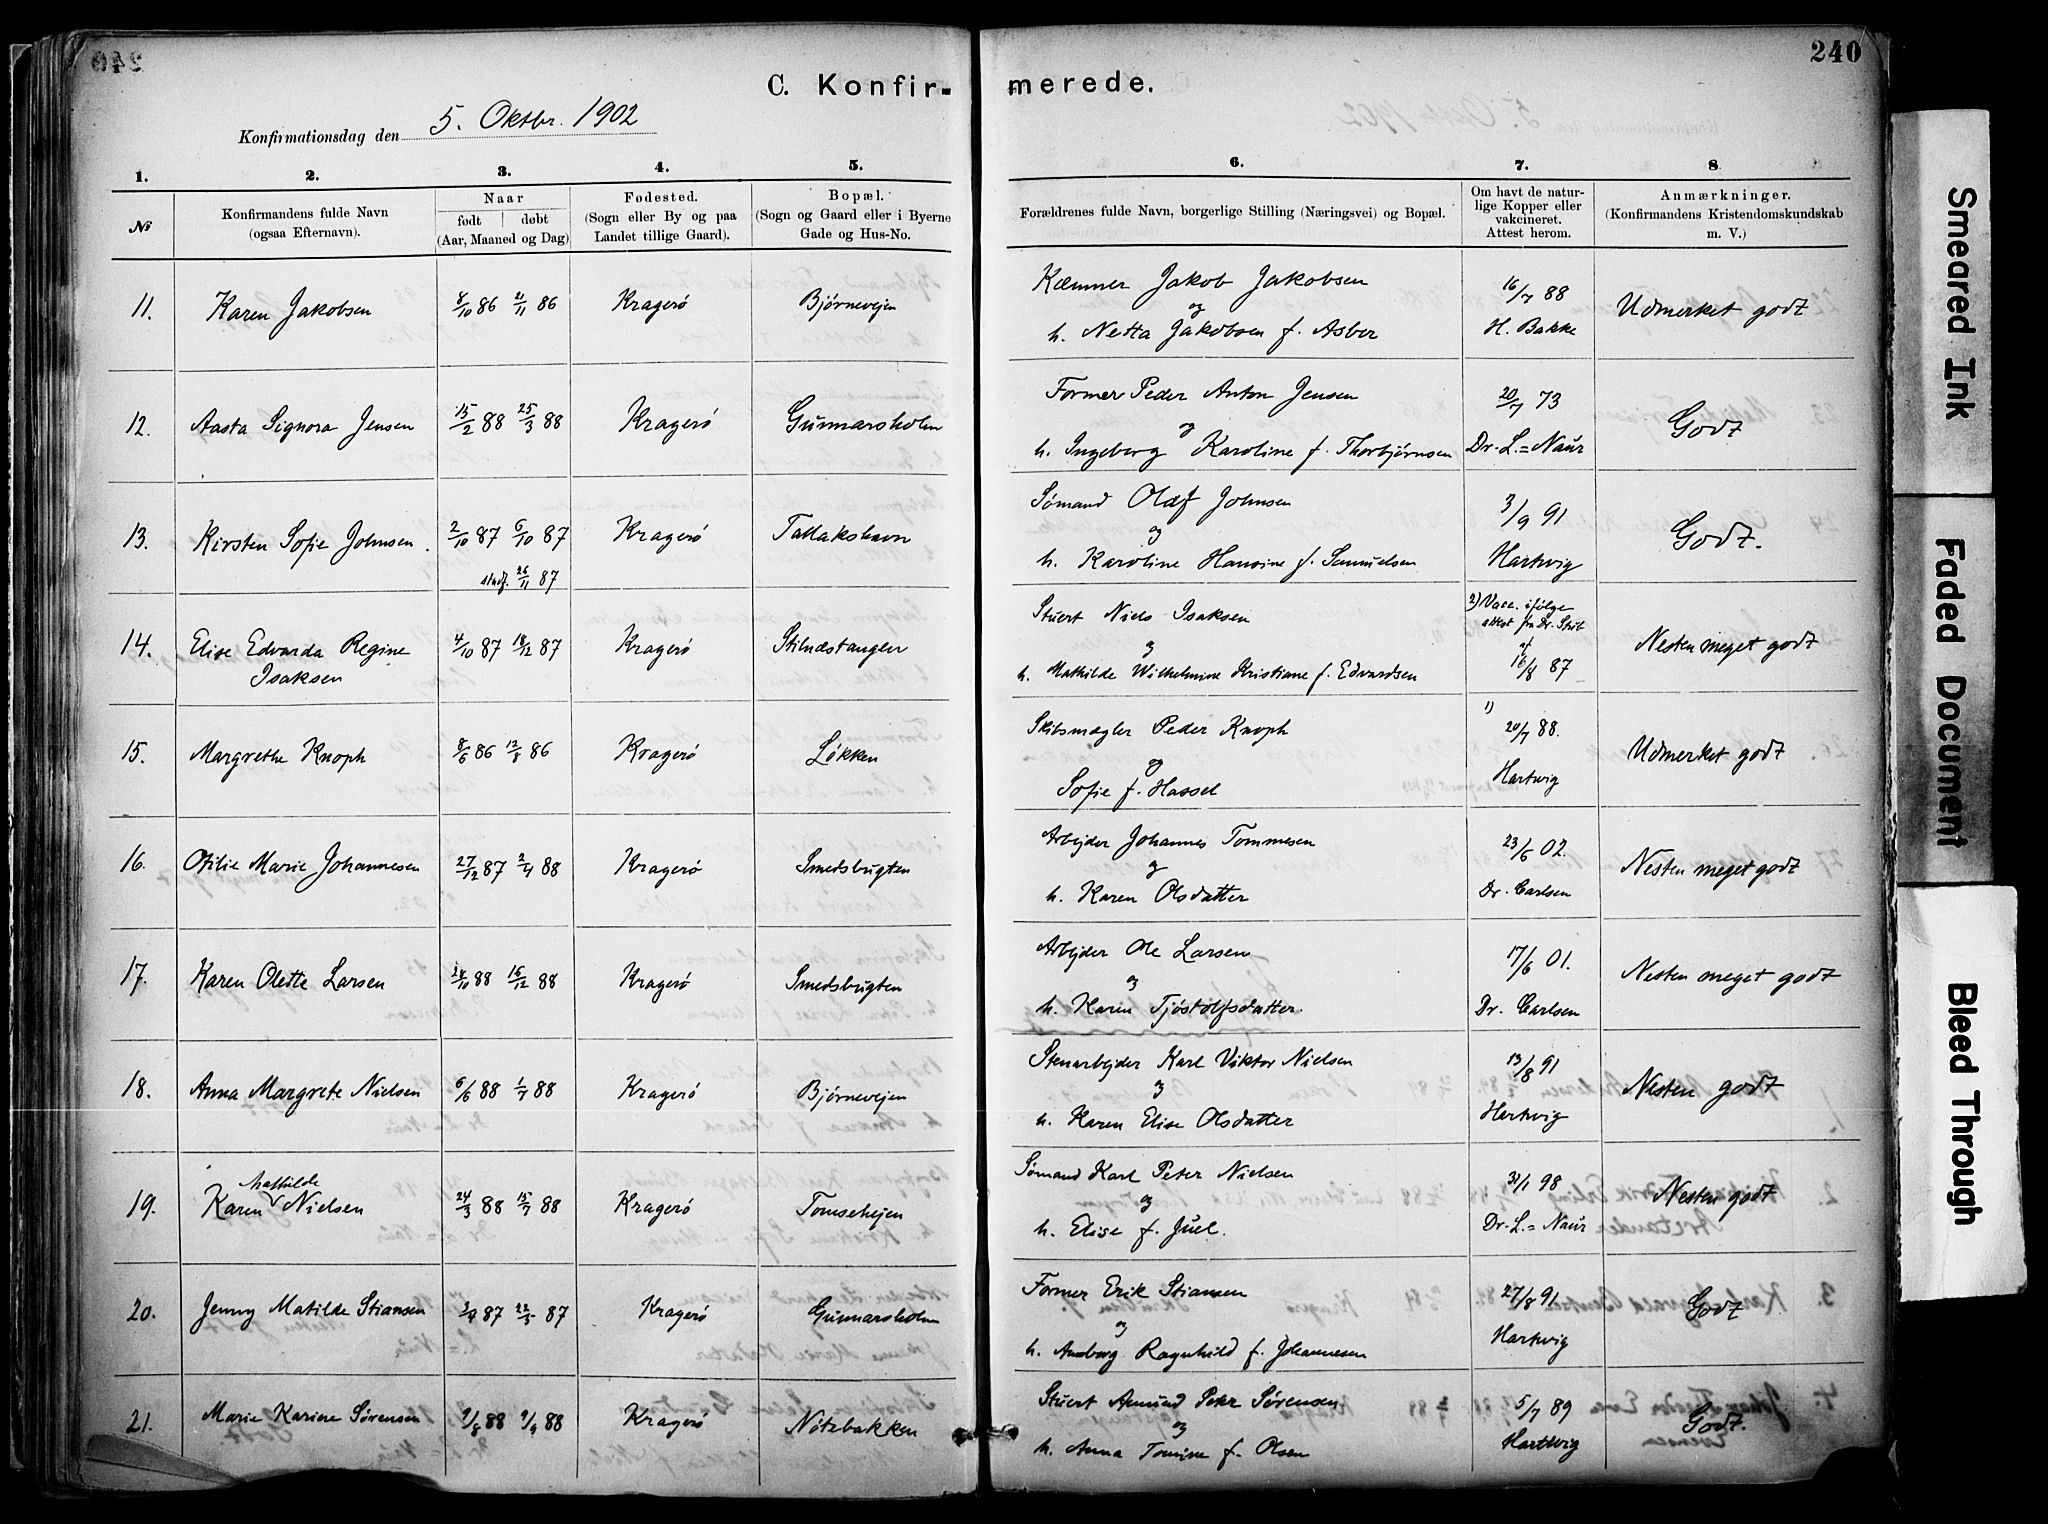 240
C. Konfirmerede.
Konfirmationsdag den 5. Oktbr. 1902
1. 2. 3. 4. 5. 6. 7. 8
No
Konfirmandens fulde Navn
(ogsaa Efternavn).
Naar
født døbt
(Aar, Maaned og Dag)
Fødested.
(Sogn eller By og paa
Landet tillige Gaard).
Bopæl.
(Sogn og Gaard eller i Byerne
Gade og Hus-No.
Forældrenes fulde Navn, borgerlige Stilling (Næringsvei) og Bopæl.
Om havt de natur-
lige Kopper eller
vakcineret.
Attest herom.
Anmærkninger.
(Konfirmandens Kristendomskundskab
m. V.)
11. Karen Jakobsen 8/10 86 21/11 86 Kragerö Bjørnevejen
Kæmner Jakob Jakobsen
og
h. Netta Jakobsen f. Asber
16/7 88
H. Bakke
Udmerket godt
12. Aasta Signora Jensen 15/2 88 25/3 88 Kragerö Gunnarsholm
Former Peder Anton Jensen
og
h. Ingeborg Karoline f. Thorbjørnsen
20/7 73
Dr. L.=Naur
Godt
13. Kirsten Sofie Johnsen. 2/10 87 6/10 87 Kragerö Tallakshavn
stadf. 26/11 87
Sømand Olaf Johnsen
og
h. Karoline Hansine f. Samuelsen
3/9 91
Hartvig
Godt.
14. Elise Edvarda Regine
Isaksen
4/10 87 18/12 87 Kragerö Stilnæstangen
Stuert Niels Isaksen
og
h. Mathilde Wilhelmine Kristiane f. Edvardsen
2) Vacc. ifølge
attest fra Dr.
af
16/8 87
Nesten meget godt
15. Margrethe Knoph 8/6 86 12/8 86 Kragerö Løkken
Skibsmægler Peder Knoph
og
Sofie f. Hassel
1)
20/7 88.
Hartvig
Udmerket godt
16. Otilie Marie Johannesen 27/12 87 2/4 88 Kragerö Smedsbugten
Arbejder Johannes Tommesen
og
h. Karen Olsdatter
23/6 02.
Dr. Carlsen
Nesten meget godt
17. Karen Olette Larsen 24/10 88 16/12 88 Kragerö Smedsbugten
Arbejder Ole Larsen
og
h. Karen Tjöstolfsdatter.
17/6 01.
Dr. Carlsen
Nesten meget godt
18. Anna Margrete Nielsen 6/6 88 1/7 88 Kragerö Bjørnevejen
Stenarbejder Karl Viktor Nielsen
og
h. Karen Elise Olsdatter
13/8 91
Hartvig
Nesten godt
19. Karen Mathilde Nielsen 24/3 88 15/7 88 Kragerö Tomsehejen
Sømand Karl Peter Nielsen
og
h. Elise f. Juel.
31/1 98
Dr. L.=Naur
Nesten godt
20. Jenny Matilde Stiansen 3/4 87 22/5 87 Kragerö Gunnarsholm
Former Erik Stiansen
og
h. Ragnhild f. Johannesen
27/8 91
Hartvig
Godt
21. Marie Kariene Sørensen 9/8 88 9/9 88 Kragerö Nötebakken
Stuert Amund Peter Sørensen
og
h. Anna Tomine f. Olsen
5/7 89
Hartvig
Godt.
Smeared Ink
Faded Document
Bleed Through